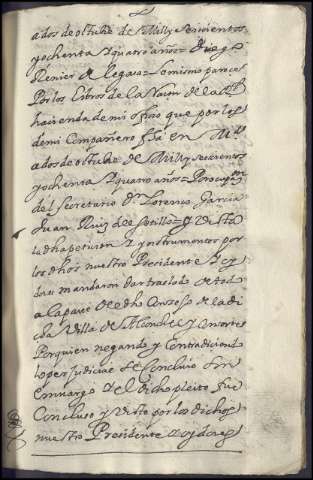 a dos de otubre de mill y seiscientos
y ochenta y quatro años = Diego
Renier de legasa = lo mismo parece
Por los libros de la Raçon de la Rl
hacienda de mi ofiço que por los
de mi Compañero fha en Md
a dos de otubre de Mill y seiscientos
y ochenta y quatro años =
del Secretario Dn Lorenço Garcia
Juan Ruiz de Sotillo = y Vista
la dha petiçion y ynstrumentos por
los dhos nuestro Presidente y oy
dores mandaron dar traslado de todo
a la parte de el dho Conzejo de la di
cha Villa de y Consortes
Por quien negando y Contradiciendo
lo perjudicial se Concluio sin
embargo y el dicho pleito fue
Concluso y Visto por los dichos
nuestro Presidente y oydores